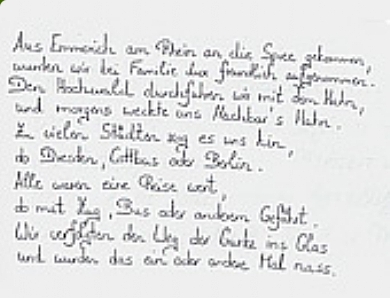 Aus Emmerich am Rhein an die Spree gekommen,
wurden wir bei Familie freundlich aufgenommen.
Den Hochwald durchfuhren wir mit dem Kahn,
und morgens weckte uns Nachbar's Hahn.
Zu vielen Städten zog es uns hin,
ob Dresden, Cottbus oder Berlin.
Alle waren eine Reise wert,
ob mit Zug, Bus oder anderem Gefährt.
Wir verfolgten den Weg der Gurke ins Glas
und wurden das ein oder andere Mal nass.